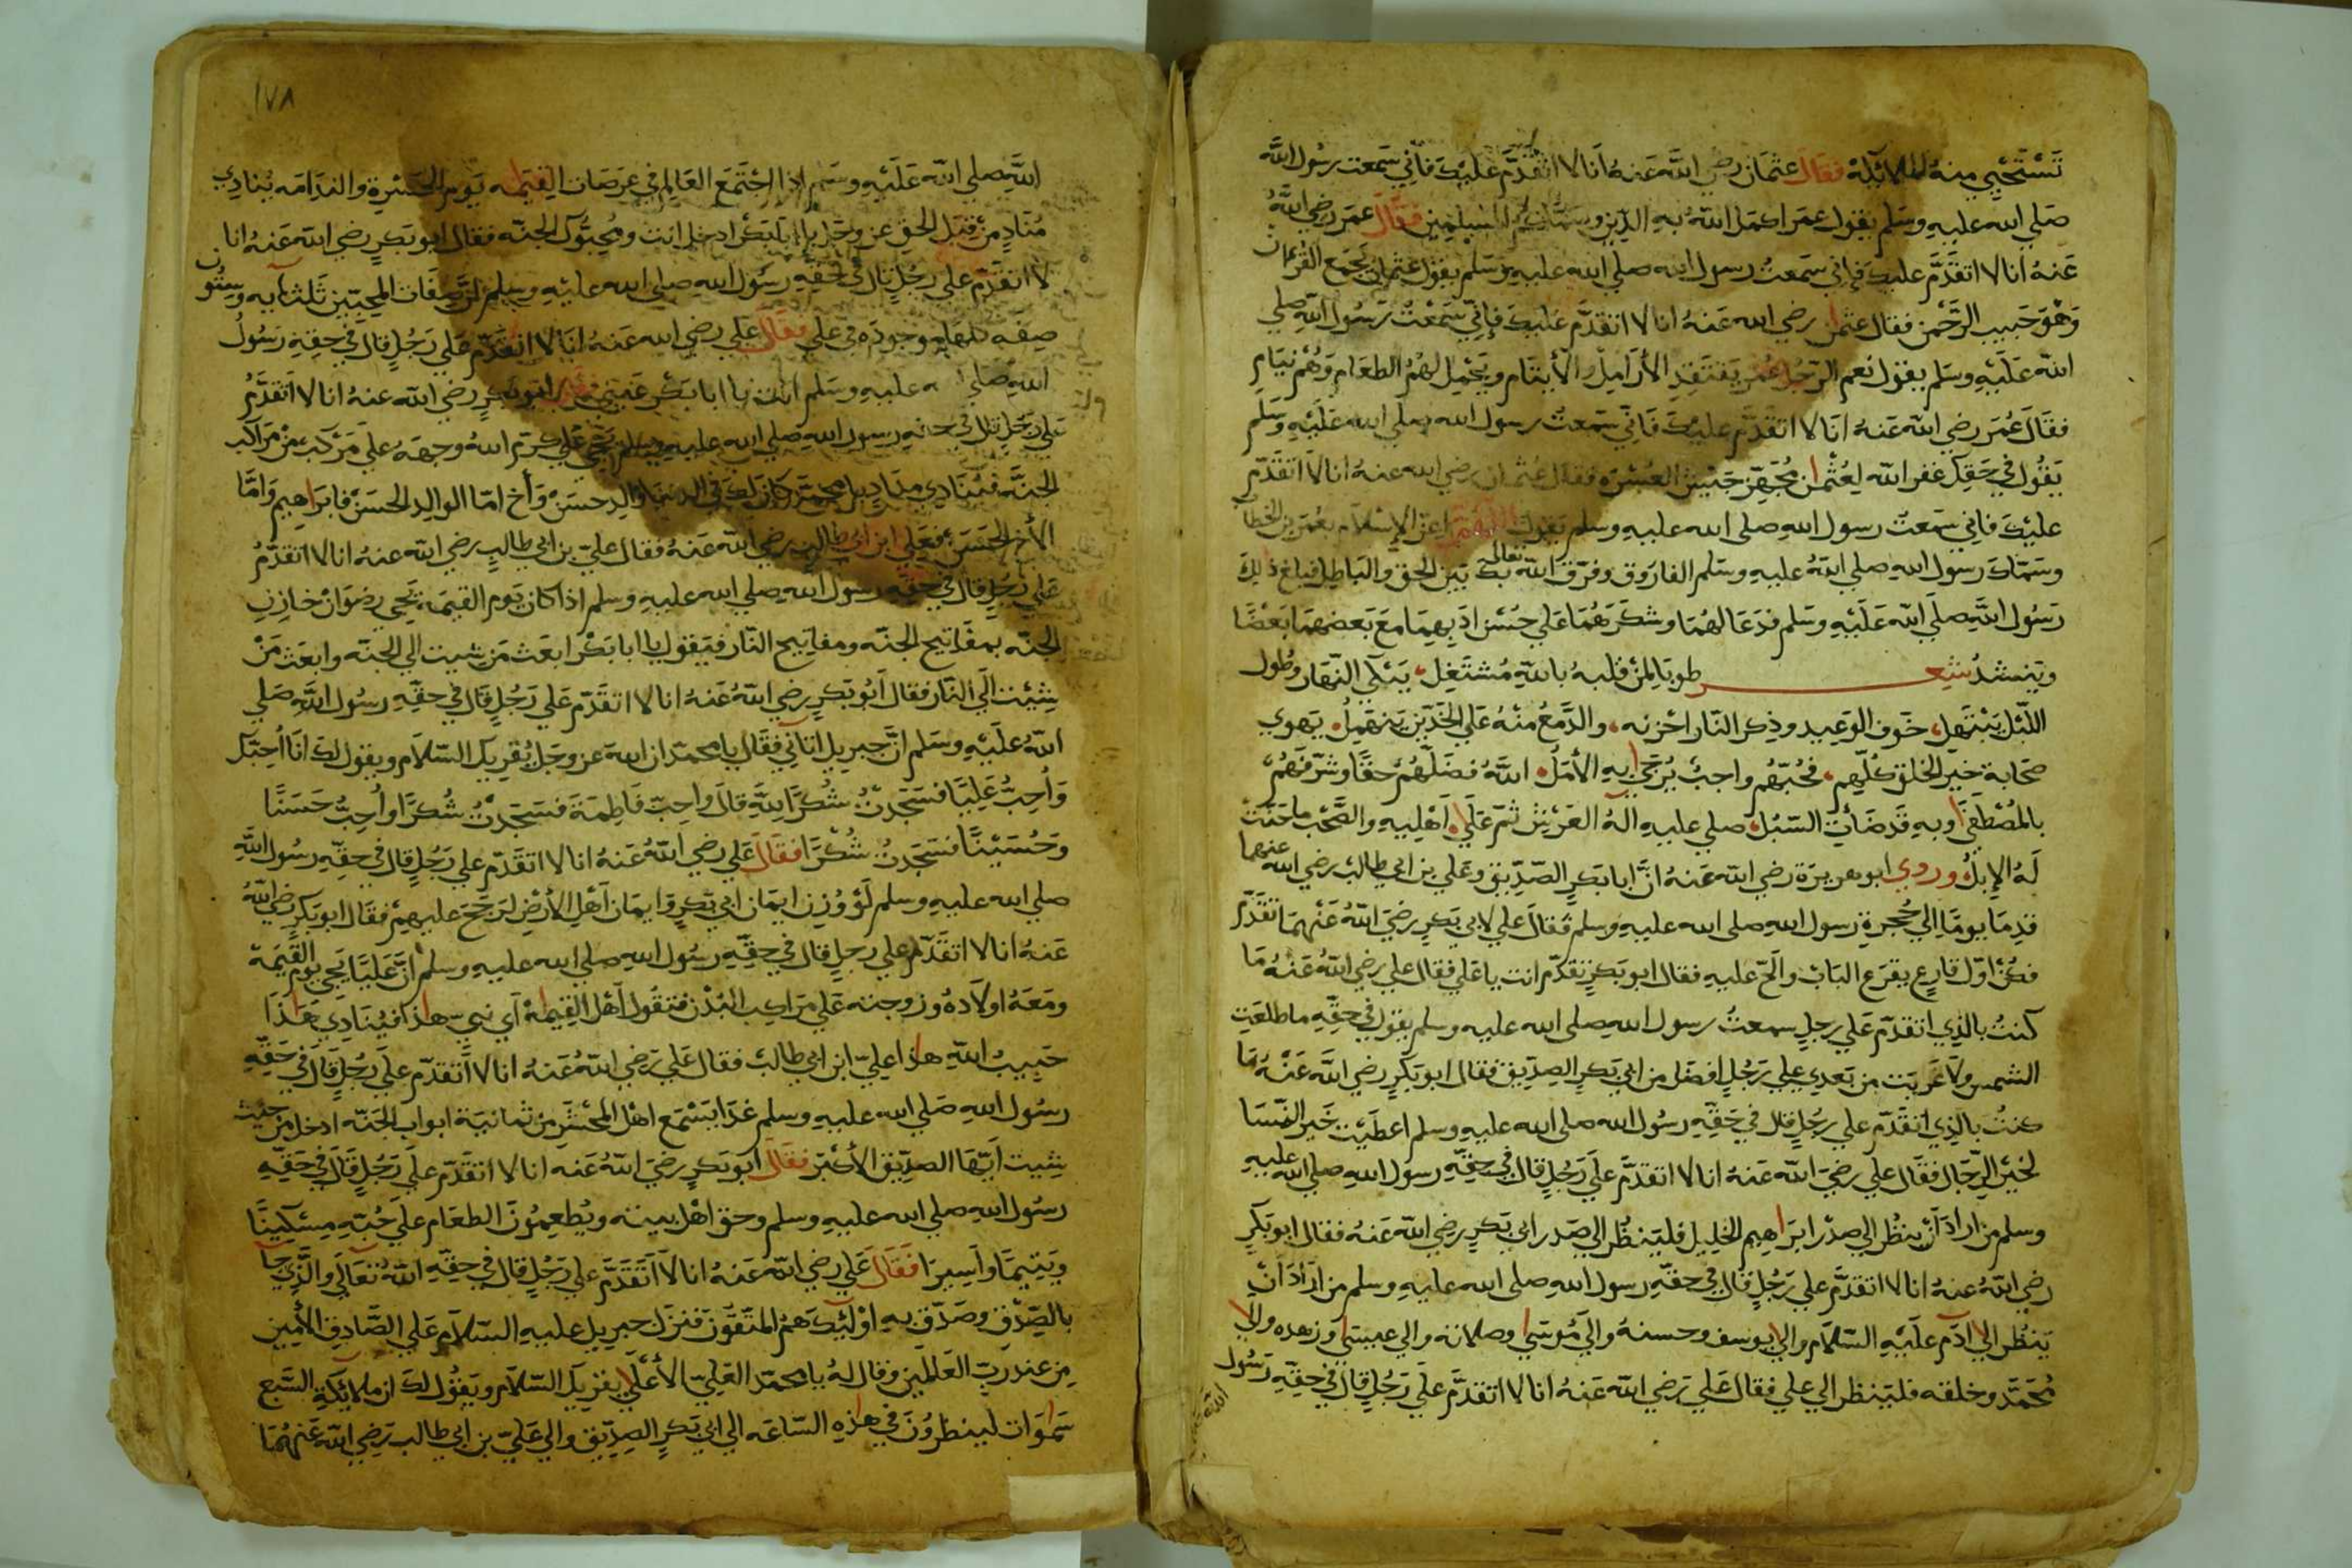 تَسْتَحْيِي منهُ الملائكة فقال عثمان رضي اللَّه عَنهُ انَا لا اتقدّم عليك فانّي سَمعت رسُول اللَّه
صَلي الله عليهِ وسَلم يقول عمر اكمل اللهُ بهِ الدين المسلمين فقال عمر رضي اللهُ
عَنهُ انا لا اتقَدَّم عليكَ فإني سَمعتُ رسول الله صلي الله عليهِ وسَلم يقول عثمان يجمع القرءان
وَهْوَ حَبيب الرّحمن فقال عثمن رضي الله عَنهُ انا لا اتقدَّم عَليكَ فإنّي سَمعْتُ رَسُول اللَّهِ صلي
اللهُ عَلَيْهِ وسَلم يقول نعم الرّجُل عُمَر يَفتَقِدِ الأرَامِل والأيتَام ويَحْمِل لهُمُ الطعَام وَهُم نيَام
فقَالَ عُمَر رضي اللهُ عَنهُ انَا لا اتقَدَّم عليكَ فَانّي سَمعتُ رسول الله صلَي الله عَلَيْهِ وَسَلَّم
يَقُول في حَقِكَ غفر الله لِعُثْمان مُجَهِّز جَيْش العُسْرَه فقال عُثمان رضي الله عنهُ انا لا اتقدّم
عليكَ فاني سَمعتُ رسول الله صلي الله عليهِ وسلم يقول اللهُمَّ اعز الإسلام بعُمَر بن الخطاب
وسَمّاك رسول الله صلي اللهُ عليهِ وسَلم الفاروق وفرّق اللهُ تعالى بك بَيَن الحق والبَاطِل فبلغ ذلِكَ
رَسُول اللَّهِ صلَي اللهُ عَلَيْهِ وسَلم فدَعَا لهُمَا وشكَرَهُمَا عَلي حُسْن ادَبهِمَا مَعَ بَعضهمَا بَعْضًا
وَيَنشدُ شِعر طوبَا لِمنْ قلبهُ باللهِ مُشتَغِل، يَبْكي النّهَار وطُول
اللَّيْل يَبْتَهِل، خَوف الوَعِيد وذِكر النّار احْزنه، والدَّمعُ منْهُ عَلي الخَدَّين يَنهَمِلُ، يَهوي
صَحَابة خير الخلق كُلّهِم، فحُبّهُم واجبٌ يُرْتجَي بهِ الأمَلُ، اللَّهُ فضَلَّهُمْ حقًا وشرّفهُمْ
بالمُصْطَفَي وبهِ قَد ضَاتْ السّبُل، صلي عليهِ الهُ العَرْش ثم عَلَي، اَهْلِيهِ والصَّحْب ما حَنّتْ
لَهُ الإِبلُ وروي ابو هريرَة رضي الله عَنهُ انَّ ابا بَكرٍ الصّدِّيق وعَلي بن ابي طالب رضي الله عنهما
قدِمَا يومًا الي حُجرةِ رَسول الله صلي الله عليهِ وسلم فقَالَ علي لابي بَكرٍ رضيَ اللهُ عَنْهُمَا تقَدّم
فكُنْ اوّل قارعٍ يقرَع البَابْ والَحّ عليهِ فقال ابو بَكرٍ تقَدّم انت يا عَلي فقال علي رضي اللهُ عَنهُ مَا
كنتُ بالذِي اتقدّم عَلي رجلٍ سمعتُ رسول اللهِ صلي الله عليه وسلم يقول في حقِّهِ ما طلعَتِ
الشمس ولا غَرَبَتْ من بَعدِي علي رَجُلٍ افضَل من ابي بَكرٍ الصِدِّيق فقال ابو بَكرٍ رضي الله عَنْهُ مَا
كنتُ بالذِي اتقَدّم علي رجُلٍ قال في حَقِّهِ رسُول الله صلي الله عليه وسلم اعطَيْت خَير النسَا
لخيْر الرّجَال فقَال علي رضيَ الله عَنهُ انا لا اتقدَّم علَي رَجُلٍ قال في حقِّهِ رسول اللهِ صلي الله عليهِ
وسلم من ارادَ اَنْ ينظُر الي صدْر ابرَاهِيم الخَليل فليَنظُر الي صَدر ابي بَكرٍ رضي الله عَنهُ فقال ابو بَكرٍ
رضي اللهُ عنهُ انا لا اتقدَّم علي رَجُلٍ قال في حقّهِ رسول الله صلي الله عليهِ وسلم من ارَادَ اَنْ
يَنظُر الي ادَم علَيْهِ السّلاَم والي يوسف وحسنهُ والي مُوسَي وصلاته والي عيسَي وزهده والي
مُحمّدٍ وخلقه فليَنظر الي علي فقال عَلي رَضي اللهُ عَنهُ انا لا اتقدَّم علَي رَجُلٍ قال في حقِّهِ رَسُول
الله
١٧٨
اللَّهِ صلي اللهُ عَلَيْهِ وسَلم اذا اجْتَمَعَ العَالم في عَرَصَات القيمَه يَوم الحَسْرَة والندَامَه يُنادِي
مُنَادٍ مِن قِبَل الحق عز وجَل يا ابا بَكر ادخل انت ومُحِبّوكَ الجنّه فقال ابو بَكرٍ رضي الله عَنهُ انا
لا اتقدّم علي رجُلٍ قال في حَقِّهِ رسُول اللهِ صلي الله عليْهِ وسلم ثَلثمايه وستُون
صِفَه كلهَا موجودَه في علي فقَالَ عَلي رضي الله عَنهُ انَا لا اتقَدَّم عَلي رَجُلٍ قال في حقِهِ رسُولُ
اللهِ صَلي الله عليهِ وسَلم انت يا ابا بَكر ابو بَكرٍ رضي الله عنهُ انا لا اَتقَدَّمُ
علي رَجُلٍ قال في حقهِ رسول اللهِ صَلي الله عليهِ وسلم يَجي علي كرّم اللهُ وجهَهُ علي مَرْكبٍ منْ مَرَاكب
الجنَّه فيُنَادِي منَادٍ يا محمّد كانَ لكَ في الدنيَا والِد حسَنْ وَأخ امّا الوالِد الحسَنْ فابرَاهِيم وَامّا
الأخ الحَسَن فعَلي ابن ابي طالب رضي الله عَنهُ فقال عليّ بن ابي طالبٍ رضي الله عنهُ انا لا اتقدَّمُ
عَلي رَجُلٍ قال في حقِّهِ رسول اللَّهِ صلي الله عليهِ وسلم اذا كان يَوم القيمَه يَجي رِضوَانْ خازن
الجنّه بمفَاتيح الجنّه ومفاتيح النّار فيَقول يا ابا بَكْر ابعَث مَن شيت الي الجنّه وابعَث مَنْ
شِيْت اليَ النّار فقال اَبُو بَكرٍ رضي اللهُ عَنهُ انا لا اتقدَّم عَلي رَجُلٍ قال في حقِّهِ رسُول اللَّهِ صَلي
اللهُ علَيْهِ وسَلم انَّ جبريل اتاني فقَال يا محمّد ان اللهَ عز وجَل يُقرِيكَ السّلاَم ويقول لكَ انَا اُحِبُّكَ
وَاُحِبُّ عَلِيًّا فسَجَدتُ شُكرًا للَّهِ قالَ واحِبّ فَاطِمَة فسَجَدتُ شُكرًا واُحِبُّ حَسَنًا
وَحُسَيْنًا فسَجَدتُ شُكْرًا فقَالَ عَلي رضي اللهُ عَنهُ انا لا اتقَدّم علي رَجُلٍ قال في حقِّهِ رسُول اللَّهِ
صلي الله عليهِ وسلم لَوْ وُزن ايمَان ابي بَكرٍ وايمَان اَهْل الأرْض لرَجَحَ عليهِمْ فقال ابو بَكرٍ رضي اللهُ
عَنهُ انا لا اتقَدَّم علي رجلٍ قال في حقِّهِ رسُول اللهِ صلي الله عليهِ وسلم انَّ عَليًا يَجي يَوم القيمَة
ومَعَهُ اولادهُ وزوجته عَلي مَرَاكِب البُدْن فتقُول اَهْل القِيمَة اَي نبي هاذا فيُنادِي هَذَا
حَبيبُ اللهِ هاذا عليّ ابن ابي طالبْ فقال عَلي رَضي اللهُ عَنهُ انا لا اَتقدّم علَي رَجُلٍ قَال في حَقِّهِ
رسُول اللهِ صَلي الله عليهِ وسلم غدًا يَسْمَع اهْل المحْشَر مِنْ ثمَانيَة ابواب الجَنّه ادخل مِن حيث
شِيت ايّهَا الصدّيق الأكبَر فقَالَ ابو بَكرٍ رضيَ اللهُ عَنه انا لا اتقَدّم علَي رَجُلٍ قَالَ في حَقِّهِ
رسُول اللهِ صلي الله عليهِ وسلم وحق اهْل بيته ويُطعِمُونَ الطعَام علَي حُبّهِ مِسْكِينًا
وَيَتِيمًا واَسِيرًا فَقَالَ عَلي رضي اللهُ عَنهُ انا لا اَتقَدَّم علي رَجُلٍ قال في حقِّهِ اللهُ تعَالي وَالَّذِي جا
بالصِّدْقِ وصَدّقَ بهِ اوْلئِكَ هَمُ المتّقُونَ فنزل جبريل عليهِ السّلاَم عَلي الصَّادِقِ الأَمِين
مِن عند ربّ العَالمِين وقال لهُ يا محمّد العَليّ الأعْلَي يقريكَ السّلاَم ويَقُول لكَ ان ملائكَة السَّبع
سَمَوَات لَينظُرُونَ في هاذِهِ السّاعَه الي ابي بَكرٍ الصِدِّيق والي عَليّ بن ابي طالبٍ رَضي الله عَنهُمَا